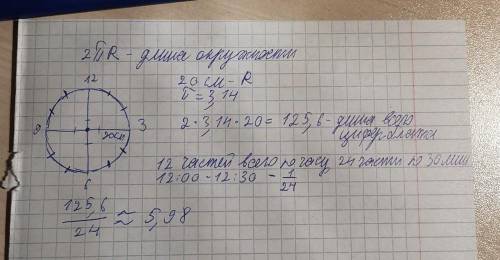 2πR - длина окружности
20 см - R
π = 3,14
12
9
3
20см
6
2 · 3,14 · 20 = 125,6 - длина всего
циферблата
12 частей всего по часу, 24 части по 30 мин
12:00 - 12:30 - 1/24
125,6/24 ≈ 5,98